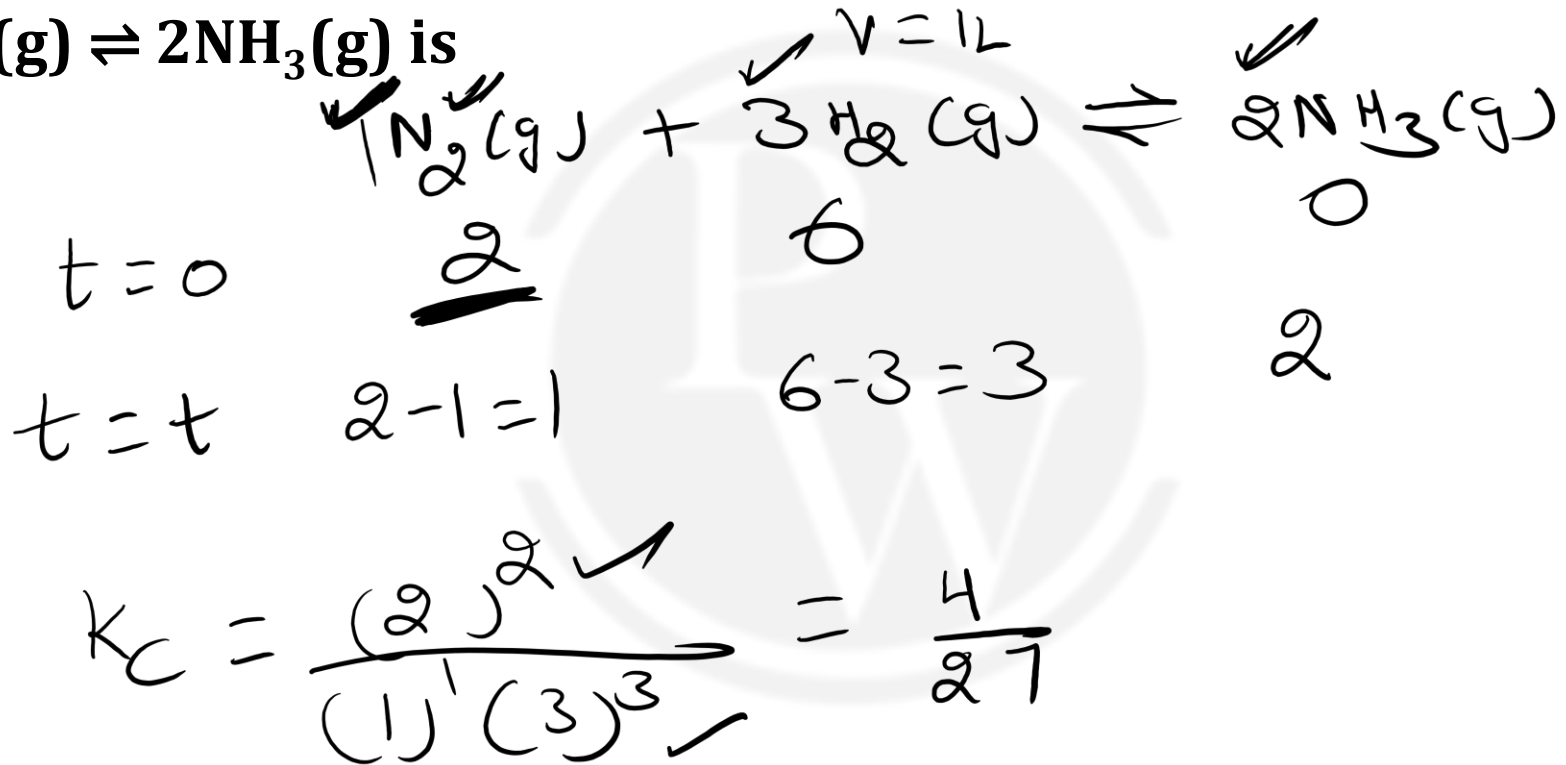 (g) ⇌ 2NH₃(g) is
V = 1L
1N₂(g) + 3H₂(g) ⇌ 2NH₃(g)
t = 0 2 6 0
t = t 2-1=1 6-3=3 2
Kc = (2)² / (1)¹ (3)³ = 4/27
PW